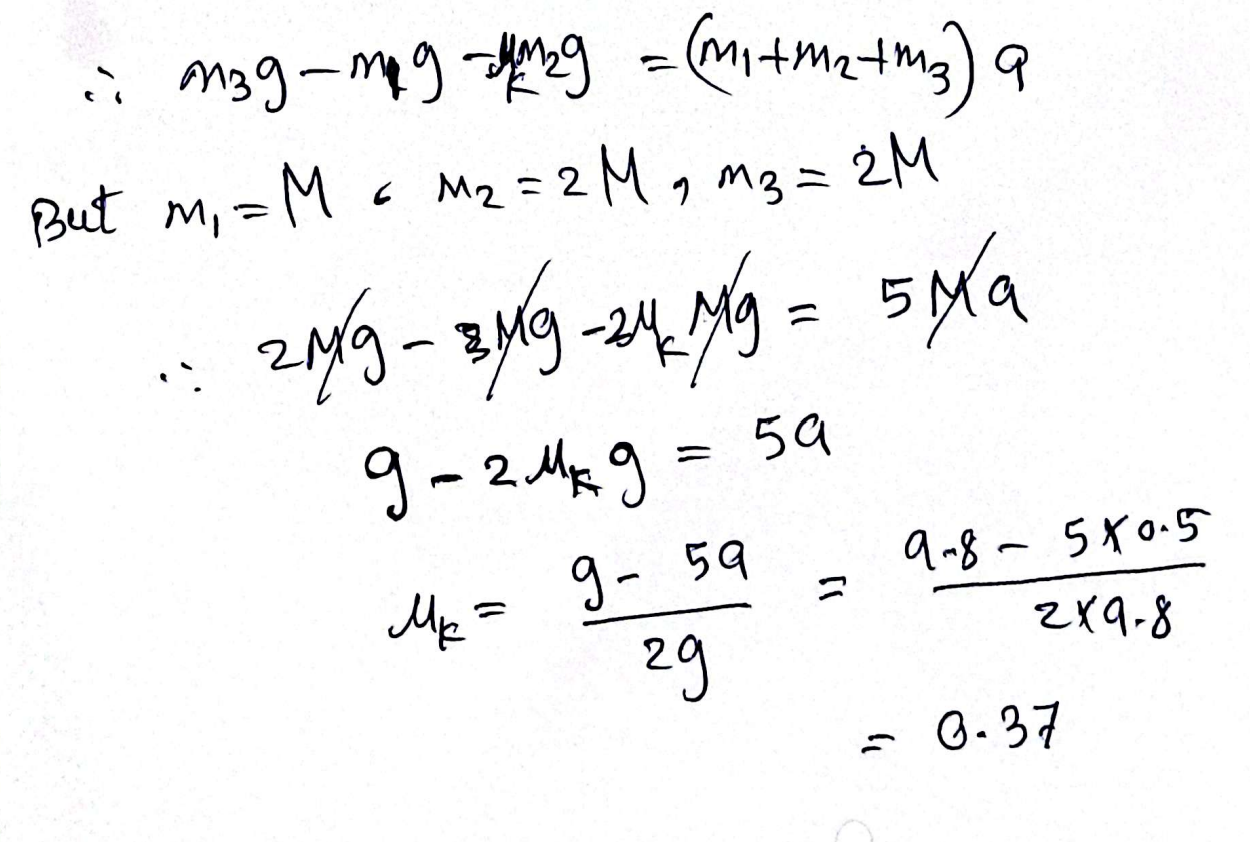 ∴ m₃g − m₁g − μₖm₂g = (m₁+m₂+m₃) a
But m₁ = M , m₂ = 2M , m₃ = 2M
∴ 2Mg − Mg − 2μₖMg = 5Ma
g − 2μₖg = 5a
μₖ = (g − 5a)/(2g) = (9.8 − 5×0.5)/(2×9.8)
= 0.37